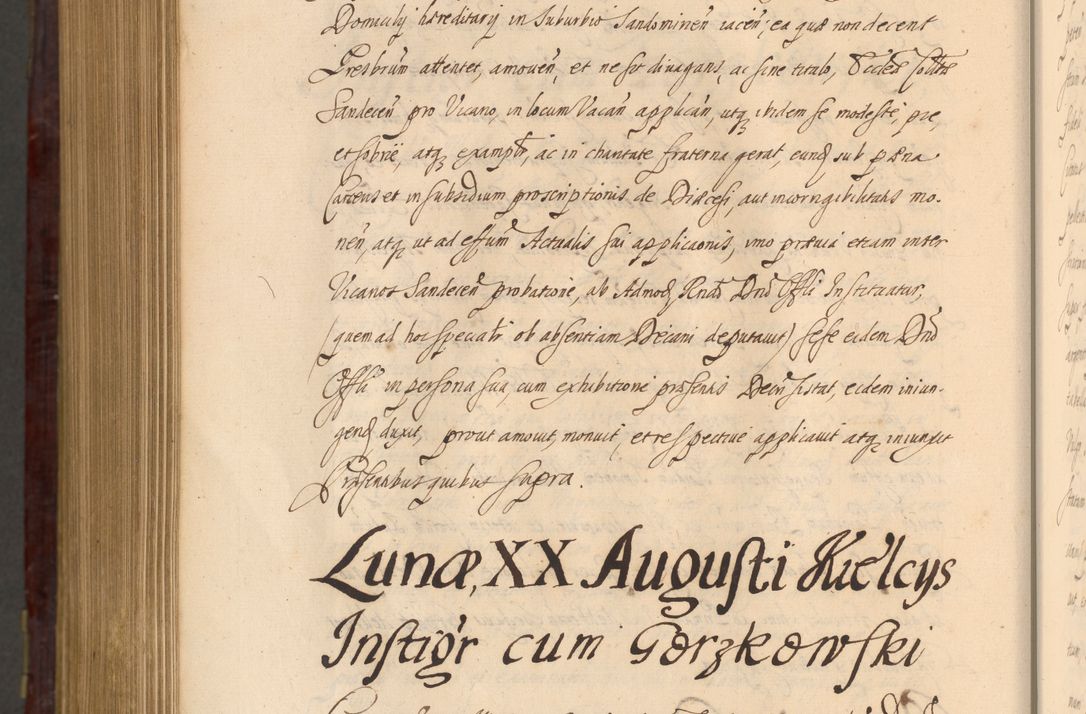 Domicilij hæreditarij in Suburbio Sandomiriēn iacēn; ea quæ non decent
Presbrūm attentet, amovēn, et ne sit divagans, ac sine titulo, Eccles
Sandecēn pro Vicario, in locum Vacan applicān, utq ibidem se modeste, pie,
et sobrie, atq exampłr, ac in charitate fraterna gerat, eunđ sub pæna
Carceris et in subsidium proscriptionis de Diæcesi, aut incorrigibilitatis mo-
nēn, atq ut ad effum Actualis sui applicaonis, imo prævia etiam inter
Vicarios Sandecēn probatione, ab Admođ Rndo Dno Offli Instituatur,
(quem ad hoc specialr ob absentiam Decani deputavit) sese eidem Dno
Offli in persona sua, cum exhibitione præsentis Decri sistat, eidem iniun-
genđ duxit, prout amovit, monuit, et respective applicavit atq iniunxit
Præsentibus quibus supra.
Lunæ, XX Augusti Kielcijs
Instigr cum Gorzkowski